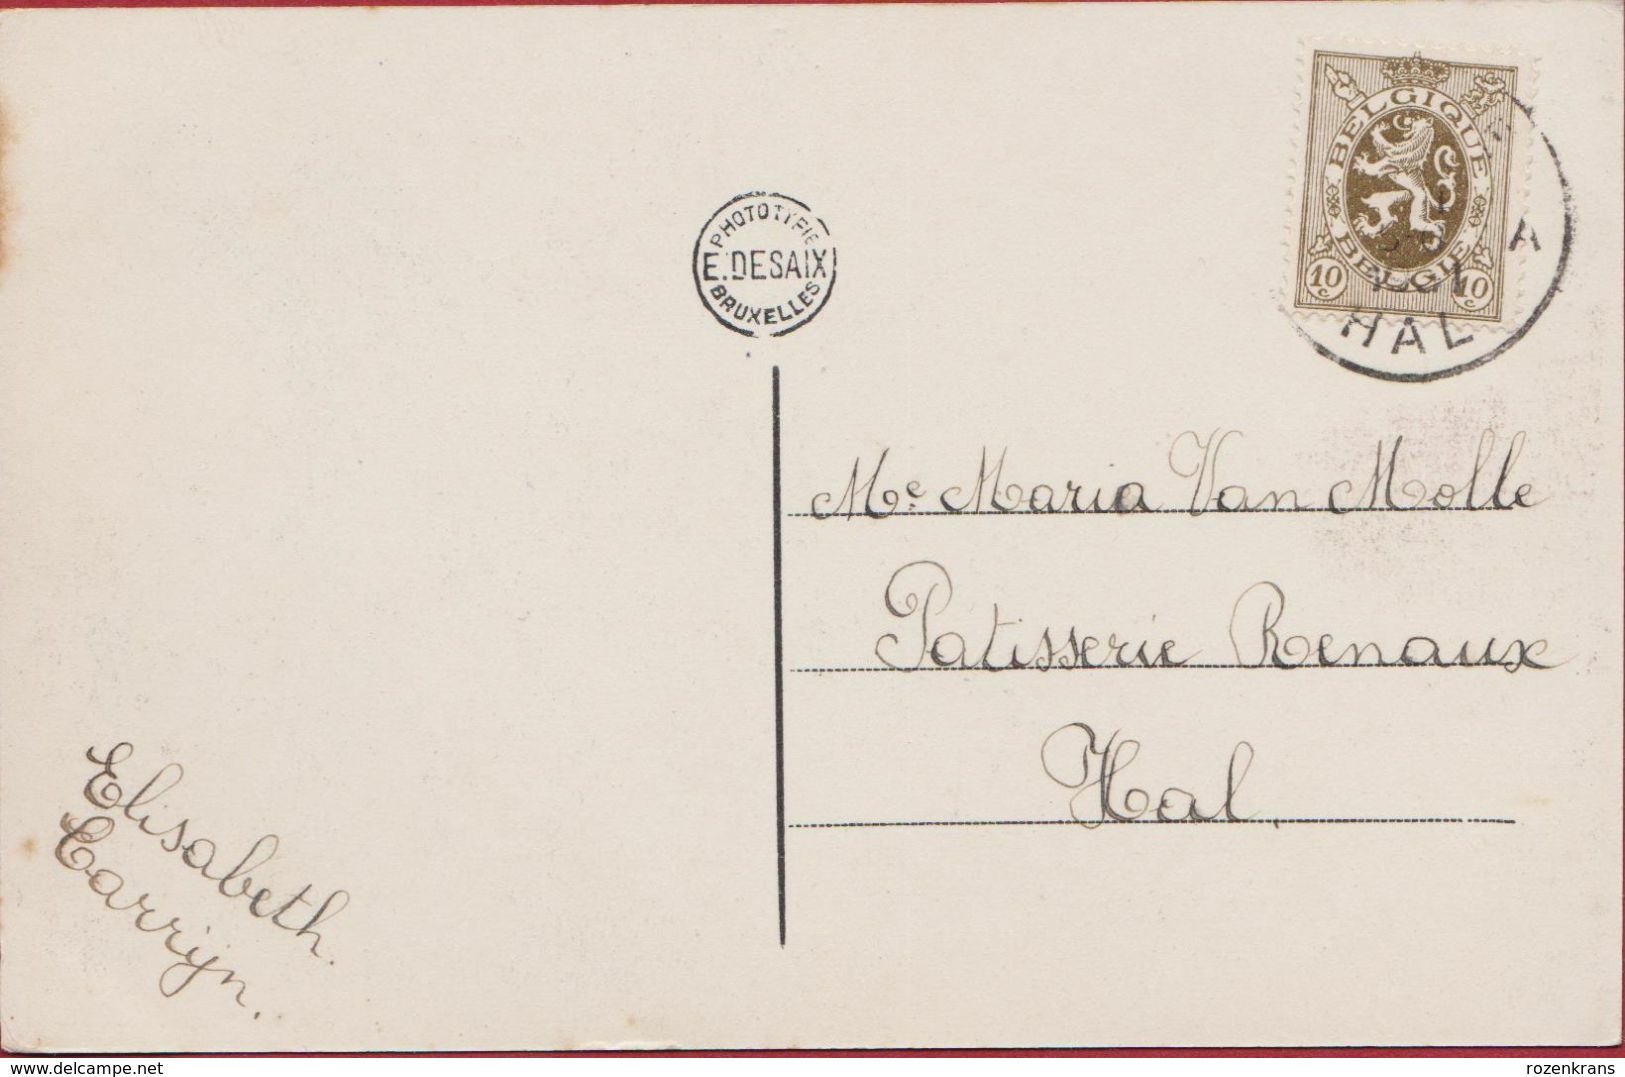 BELGIQUE
BELGIE
10 c
10 c
HAL
A
PHOTOTYPIE
E. DESAIX
BRUXELLES
Me Maria Van Molle
Patisserie Renaux
Hal.
Elisabeth
Carrijn.
delcampe.net
rozenkrans